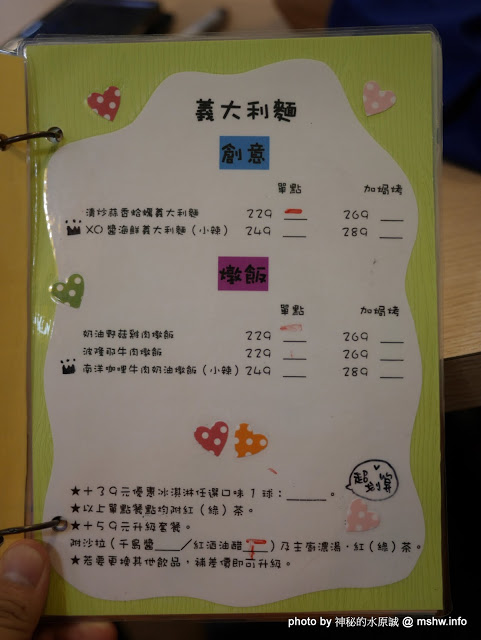 義大利麵
創意
單點 加焗烤
清炒蒜香蛤蠣義大利麵 229 269
XO醬海鮮義大利麵(小辣) 249 289
燉飯
單點 加焗烤
奶油野菇雞肉燉飯 229 269
波隆那牛肉燉飯 229 269
南洋咖哩牛肉奶油燉飯(小辣) 249 289
超划算
★+39元優惠冰淇淋任選口味1球:______。
★以上單點餐點均附紅(綠)茶。
★+59元升級套餐。
附沙拉(千島醬____/紅酒油醋____)及主廚濃湯,紅(綠)茶。
★若要更換其他飲品,補差價即可升級。
photo by 神秘的水原誠 @ mshw.info